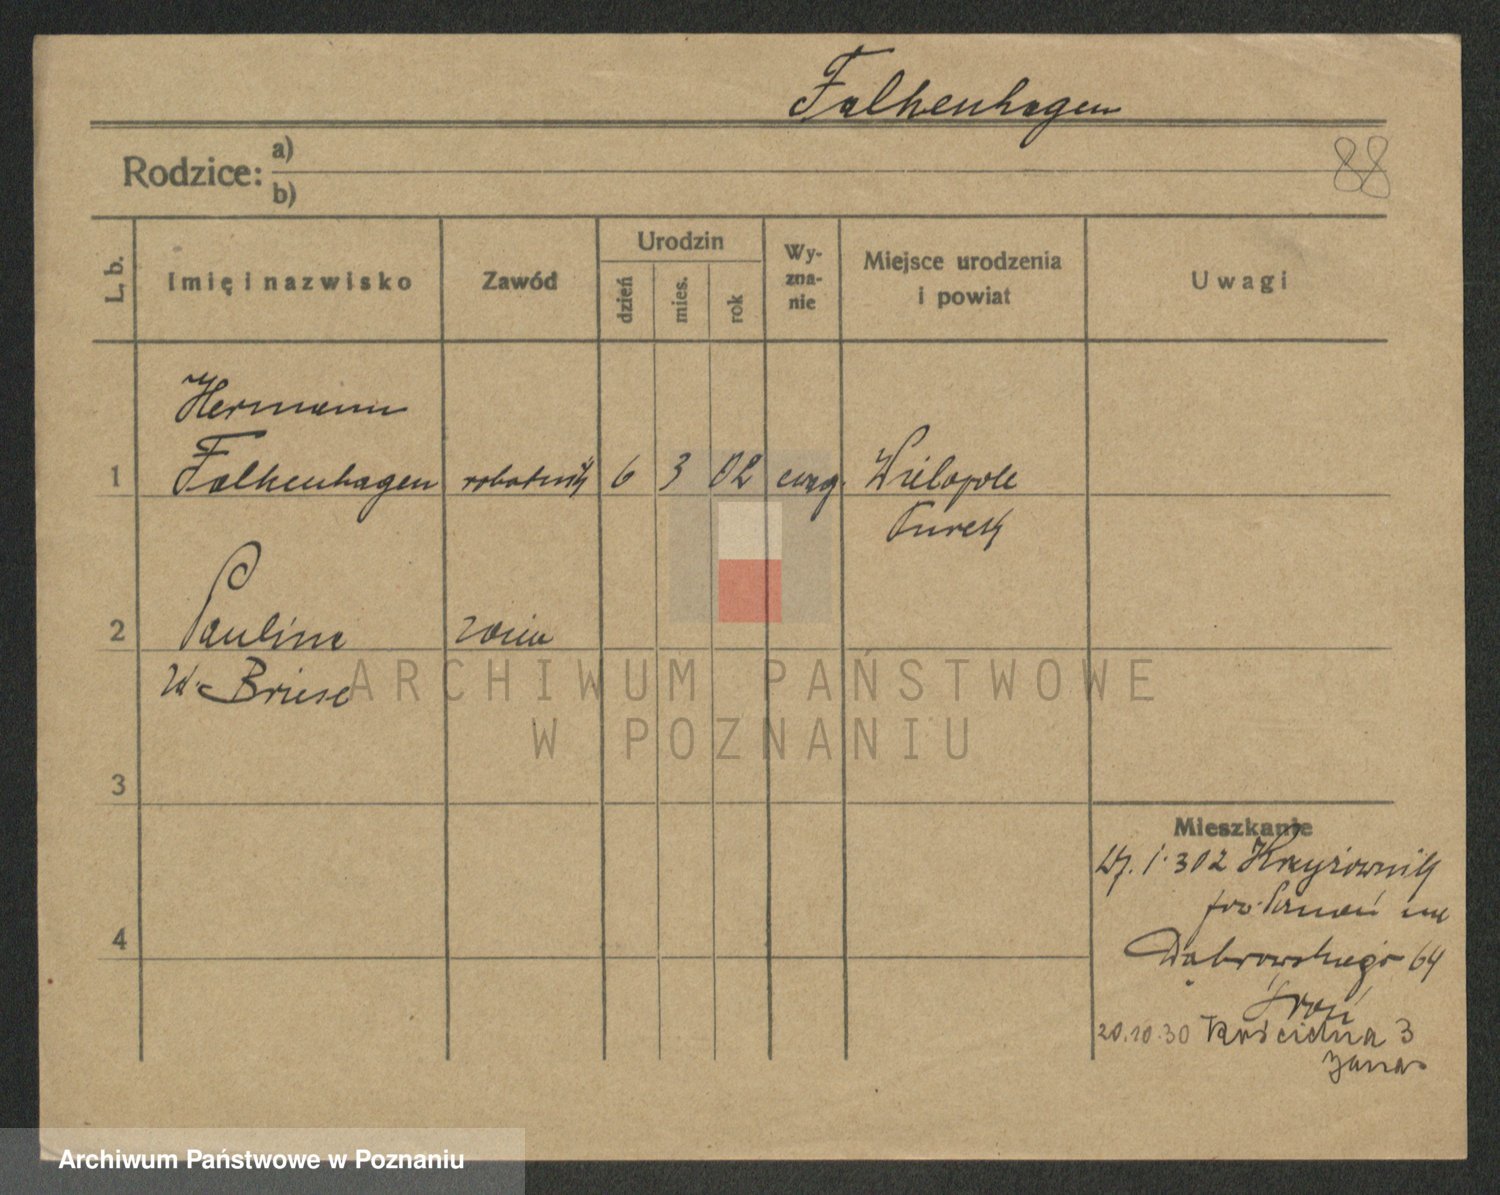 Falkenhagen
Rodzice: a)
b)
88
L. b.
Imię i nazwisko
Zawód
Urodzin
dzień
mies.
rok
Wy-
zna-
nie
Miejsce urodzenia
i powiat
Uwagi
Hermann
1 Falkenhagen robotnik 6 3 02 ewg. Wielopole
Turek
2 Pauline żona
z d. Briese
ARCHIWUM PAŃSTWOWE
W POZNANIU
3
Mieszkanie
1. 302 Krzyżownik
pow. Poznań
4
Dąbrowskiego 64
20.10.30 Kościelna 3
Archiwum Państwowe w Poznaniu